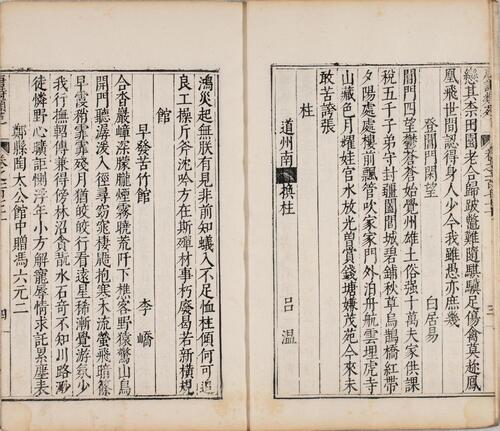 戀其柰田園老合歸跛鱉難隨騏驥足傷禽莫趂鳳
凰飛世間認得身人少今我雖愚亦庶幾
登閶門閑望 白居易
閶門四望鬱蒼蒼始覺州雄土俗强十萬夫家供課
稅五千子弟守封疆闔閭城碧鋪秋草烏鵲橋紅帶
夕陽處處樓前飄管吹家家門外泊舟航雲埋虎寺
山藏色月耀娃宮水放光曾賞錢塘嫌茂苑今來未
敢苦誇張
柱
道州南樓換柱 吕溫
鴻災起無朕有見非前知蟻入不足恤柱傾何可追
良工操斤斧沈吟方在斯殫材事朽廢曷若新橫規
館
早發苦竹館 李嶠
合沓巖嶂深朦朧煙霧曉荒阡下樵客野猿驚山鳥
開門聽潺湲入徑尋窈窕棲鼯抱寒木流螢飛暗篠
早霞稍霏霏殘月猶皎皎行看遠星稀漸覺游氛少
我行撫軺傳兼得傍林沼貪翫水石奇不知川路渺
徒憐野心曠詎惻浮年小方解寵辱情永託累塵表
鄭縣陶太公館中贈馮六元二